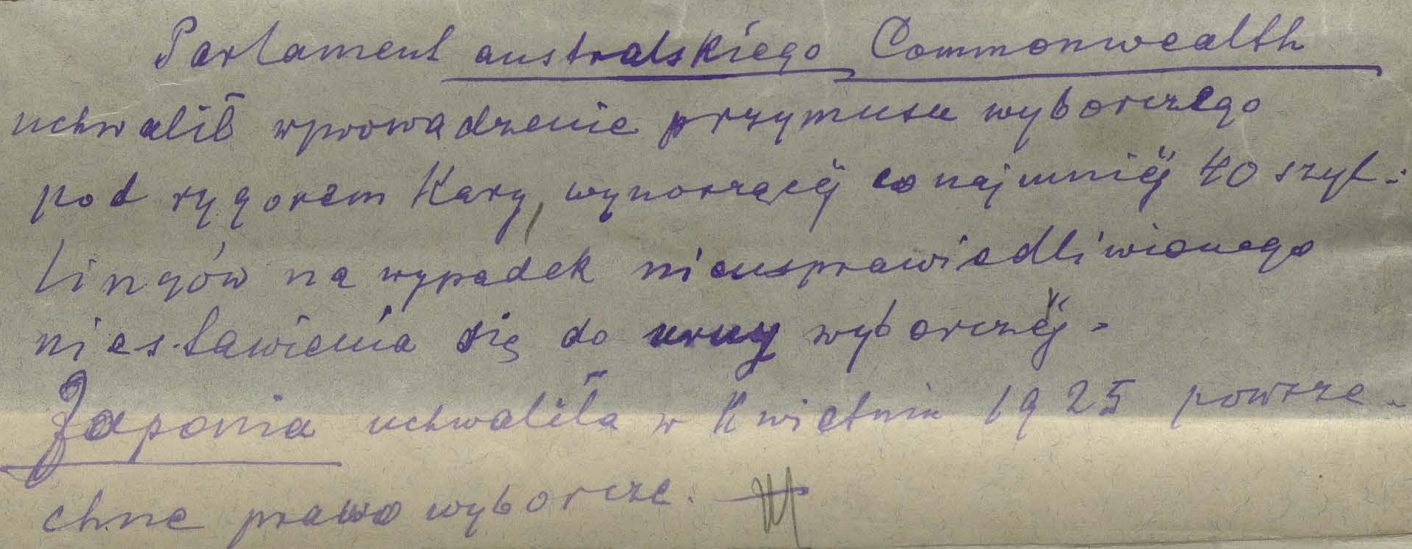 Parlament australskiego Commonwealth
uchwalił wprowadzenie przymusu wyborczego
pod rygorem kary, wynoszącéj conajmniéj 40 szyl-
lingów na wypadek nieusprawiedliwionego
niestawienia się do urny wyborczéj.
Japonia uchwaliła w kwietniu 1925 powsze-
chne prawo wyborcze. —